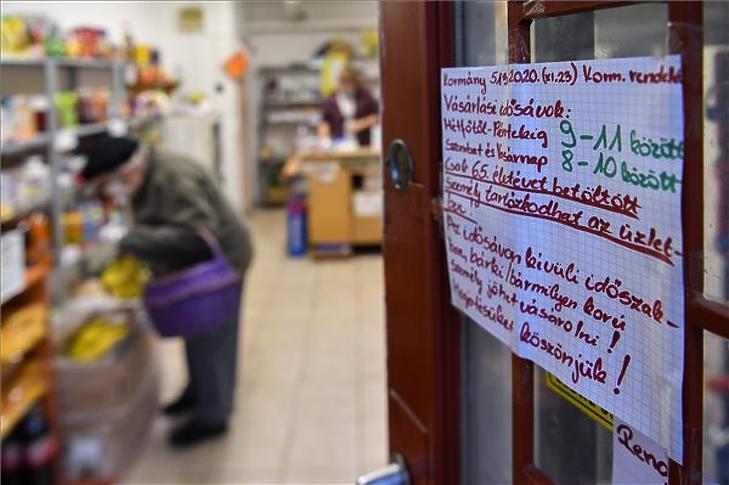 Kormány 513/2020. (XI.23) Korm. rendele
Vásárlási idősávok:
Hétfőtől-Péntekig 9-11 között
Szombat és Vasárnap 8-10 között
Csak 65. életévet betöltött
személy tartózkodhat az üzlet-
be.
Az idősávon kívüli időszak-
ban, bárki/bármilyen korú
személy jöhet vásárolni!
Megértésüket köszönjük!
Rend